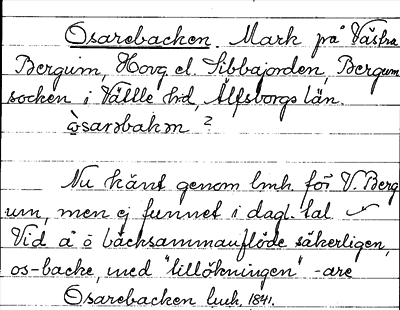 Osarebacken. Mark på Västra
Bergum, Hovg el. Sibbajorden, Bergum
socken i Vättle hd, Älfsborgs län.
òsarəbakən ?
Nu känt genom lmh. för V. Berg
um, men ej funnet i dagl. tal
Vid å o bäcksammanflöde säkerligen,
os-backe, med "tillökningen" -are
Osarebacken lmh. 1841.